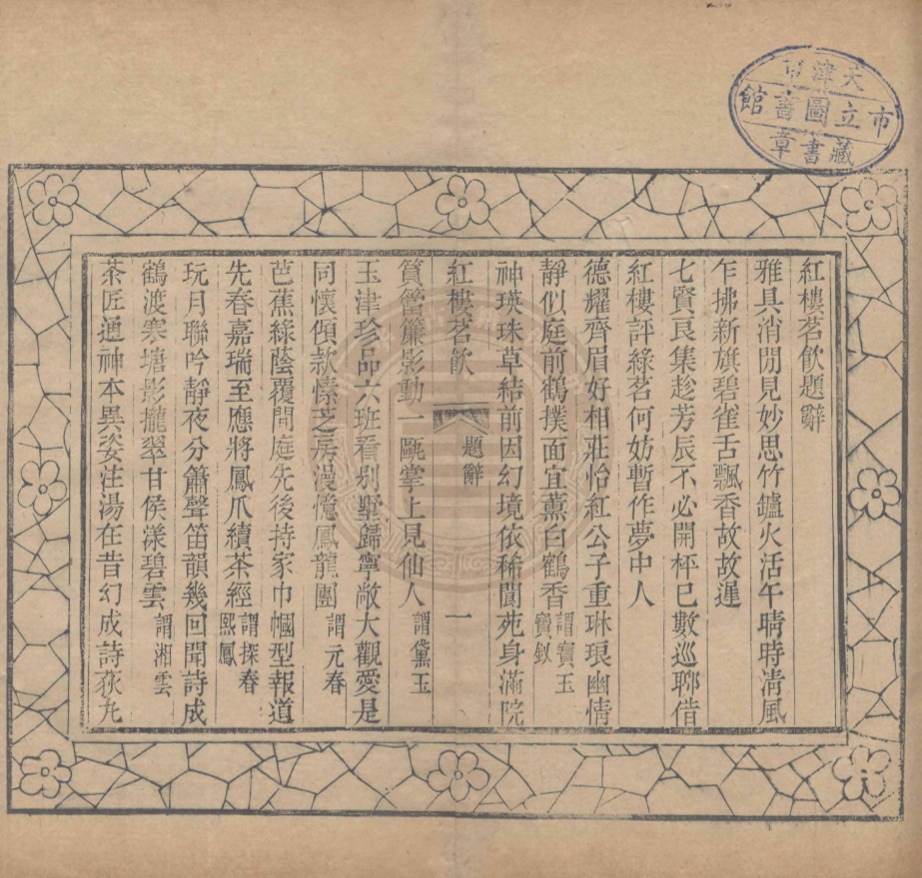 天津市
市立圖書館
藏書章
紅樓茗飲題辭
雅具消閒見妙思竹鑪火活午晴時清風
乍拂新旗碧雀舌飄香故故遲
七賢良集趁芳辰不必開枰已數巡聊借
紅樓評綠茗何妨暫作夢中人
德耀齊眉好相莊怡紅公子重琳琅幽情
靜似庭前鶴撲面宜薰白鶴香謂寶玉寶釵
神瑛珠草結前因幻境依稀閬苑身滿院
紅樓茗飲 題辭 一
篔簹簾影動一甌掌上見仙人謂黛玉
玉津珍品六班看別墅歸寧敞大觀愛是
同懷傾款愫芝房漫憶鳳龍團謂元春
芭蕉綠蔭覆閒庭先後持家巾幗型報道
先春嘉瑞至應將鳳爪續茶經謂探春熙鳳
玩月聯吟靜夜分簫聲笛韻幾回聞詩成
鶴渡寒塘影攏翠甘侯漾碧雲謂湘雲
茶匠通神本異姿注湯在昔幻成詩荻九